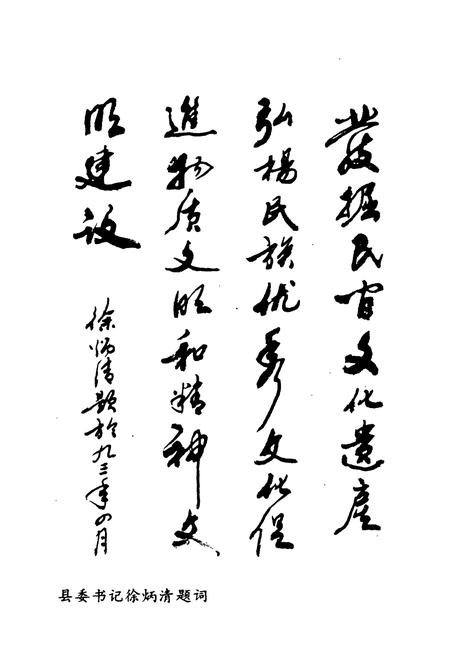 發掘民间文化遺産
弘楊民族优秀文化促
進物质文明和精神文
明建设
徐炳清题於九三年四月
县委书记徐炳清题词